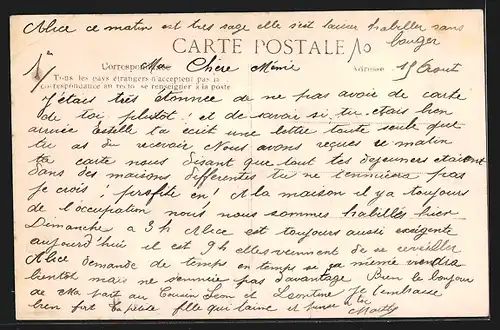 Alice ce matin est très sage elle s'est laisser habiller sans
bouger
CARTE POSTALE
Correspondance
Adresse
Tous les pays étrangers n'acceptent pas la
correspondance au recto, se renseigner à la poste
1°
10
15 Aout
Ma Chère Mémé
J'étais très étonnée de ne pas avoir de carte
de toi plutot! et de savoir si tu étais bien
arrivée Estelle t'a écrit une lettre toute seule que
tu as du recevoir Nous avons reçues ce matin
ta carte nous disant que tout tes dejeuners etaient
dans des maisons differentes tu ne t'ennuiera pas
je crois! profite en, A la maison il y a toujours
de l'occupation nous nous sommes habillés hier
Dimanche a 3h Alice est toujours aussi exigente
aujourd'hui il est 9h elles viennent de se reveiller
Alice demande de temps en temps se sa mémée viendra
bientot mais ne s'ennuie pas d'avantage Bien le bonjour
de Ma part au Cousin Leon et Leontine Je t'embrasse
bien fort Ta petite fille qui t'aime et pense a toi